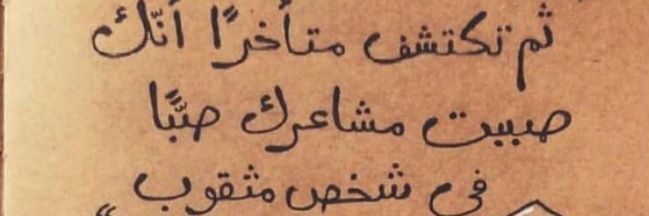 ثم تكتشف متأخرًا أنّك
صببت مشاعرك صبًّا
في شخص مثقوب "